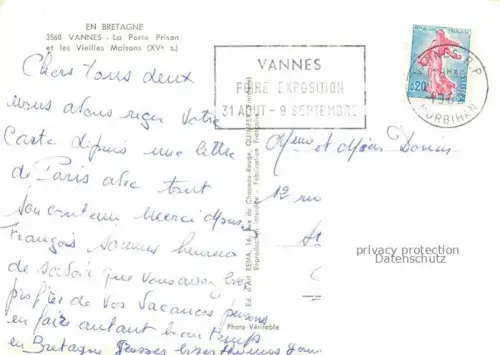 EN BRETAGNE
3560 VANNES - La Porte Prison
et les Vieilles Maisons (XVe s.)
Chers tous deux
nous avons reçu votre
Carte depuis une lettre
de Paris avec tout
son contenu Merci
François sommes heureux
de savoir que vous avez bien
profiter de vos vacances pensons
en faire autant beau temps
en Bretagne grosses bises
VANNES
FOIRE EXPOSITION
31 AOUT - 9 SEPTEMBRE
VANNES R.P.
MORBIHAN
0,20
et
12 rue
Ed. d'Art REMA, 16, Rue du Chapeau-Rouge QUIMPER
Reproduction interdite - Fabrication Française
Photo Véritable
privacy protection
Datenschutz